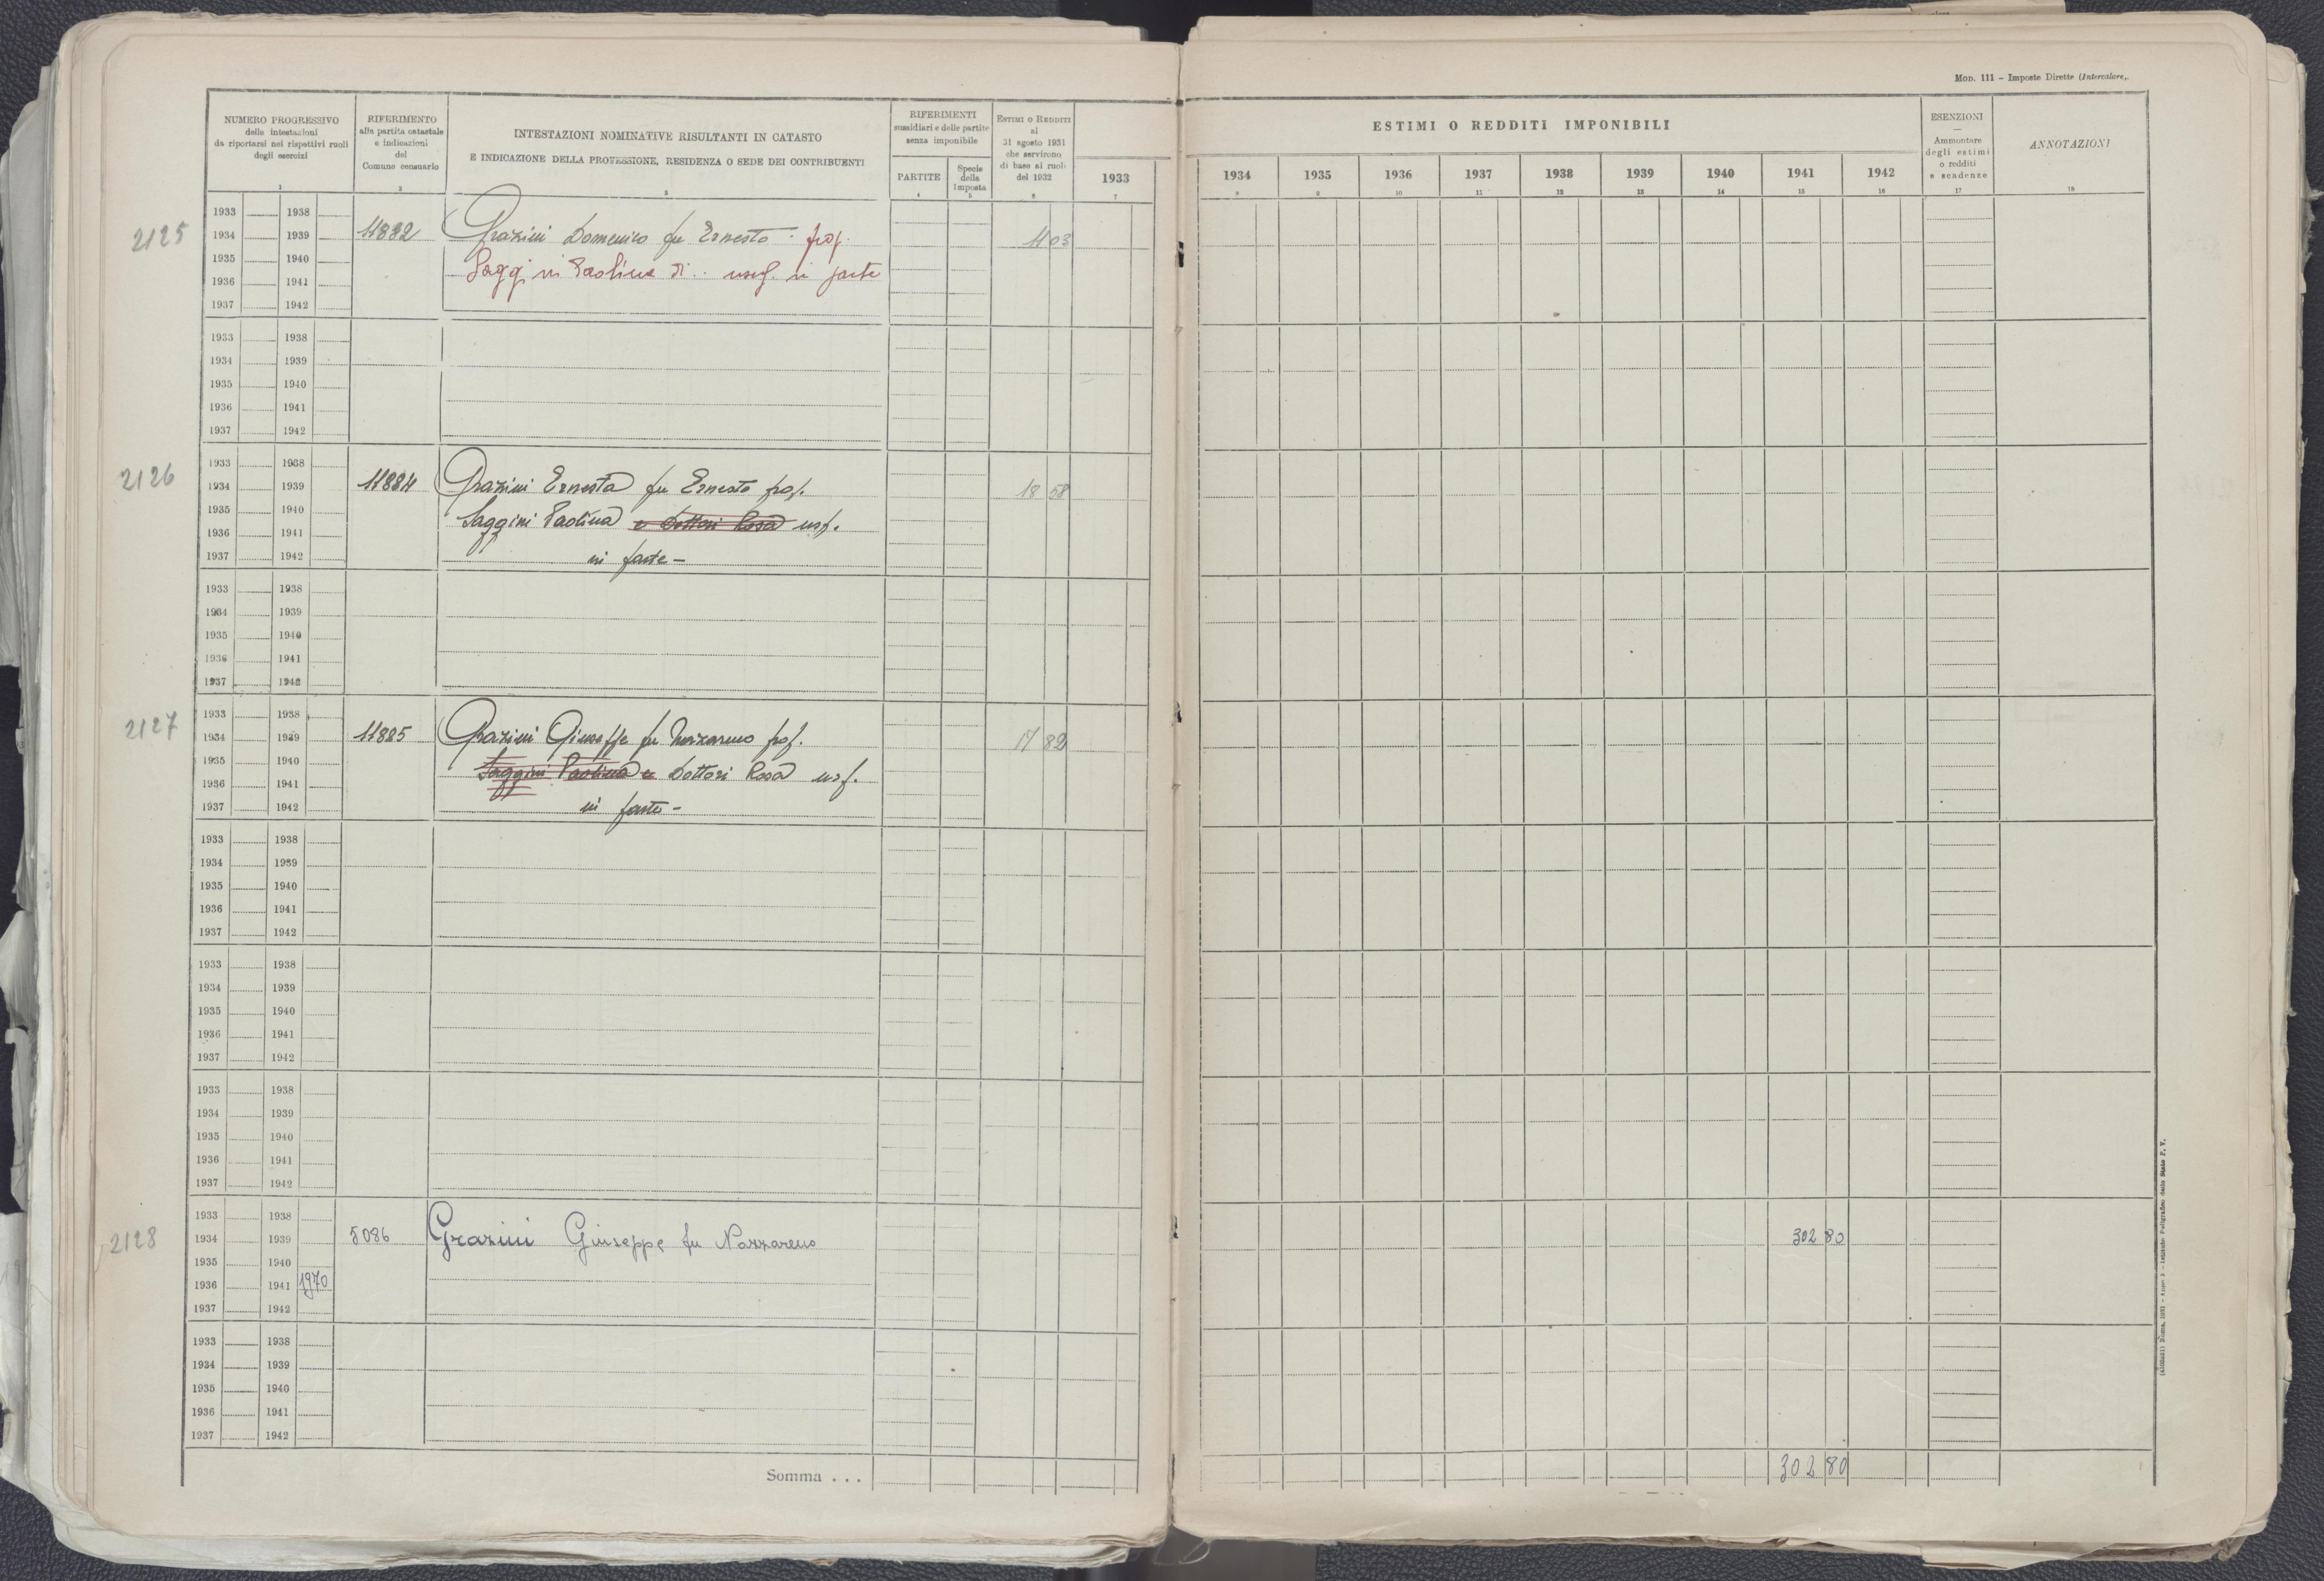 Mod. 111 – Imposte Dirette (Intercalare).
NUMERO PROGRESSIVO
delle intestazioni
da riportarsi nei rispettivi ruoli
degli esercizi
1
RIFERIMENTO
alla partita catastale
e indicazioni
del
Comune censuario
2
INTESTAZIONI NOMINATIVE RISULTANTI IN CATASTO
E INDICAZIONE DELLA PROFESSIONE, RESIDENZA O SEDE DEI CONTRIBUENTI
3
RIFERIMENTI
sussidiari e delle partite
senza imponibile
PARTITE
4
Specie
della
Imposta
5
ESTIMI O REDDITI
al
31 agosto 1931
che servirono
di base ai ruoli
del 1932
6
1933
7
ESTIMI O REDDITI IMPONIBILI
1934 1935 1936 1937 1938 1939 1940 1941 1942
8 9 10 11 12 13 14 15 16
ESENZIONI
—
Ammontare
degli estimi
o redditi
e scadenze
17
ANNOTAZIONI
18
1933 1938
2125 1934 1939 11882 Grazini Domenico fu Ernesto - prop. 11 03
1935 1940 Saggini Paolina di .. usuf. in parte
1936 1941
1937 1942
1933 1938
1934 1939
1935 1940
1936 1941
1937 1942
1933 1938
2126 1934 1939 11884 Grazini Ernesta fu Ernesto prop. 18 58
1935 1940 Saggini Paolina e Dottori Rosa usf.
1936 1941
1937 1942 in parte –
1933 1938
1934 1939
1935 1940
1936 1941
1937 1942
1933 1938
2127 1934 1939 11885 Grazini Giuseppe fu Nazzareno prop. 17 82
1935 1940 Saggini Paolina e Dottori Rosa usf.
1936 1941
1937 1942 in parte –
1933 1938
1934 1939
1935 1940
1936 1941
1937 1942
1933 1938
1934 1939
1935 1940
1936 1941
1937 1942
1933 1938
1934 1939
1935 1940
1936 1941
1937 1942
1933 1938
2128 1934 1939 5086 Grazini Giuseppe fu Nazzareno 302 80
1935 1940
1936 1941 1970
1937 1942
1933 1938
1934 1939
1935 1940
1936 1941
1937 1942
Somma . . . 302 80